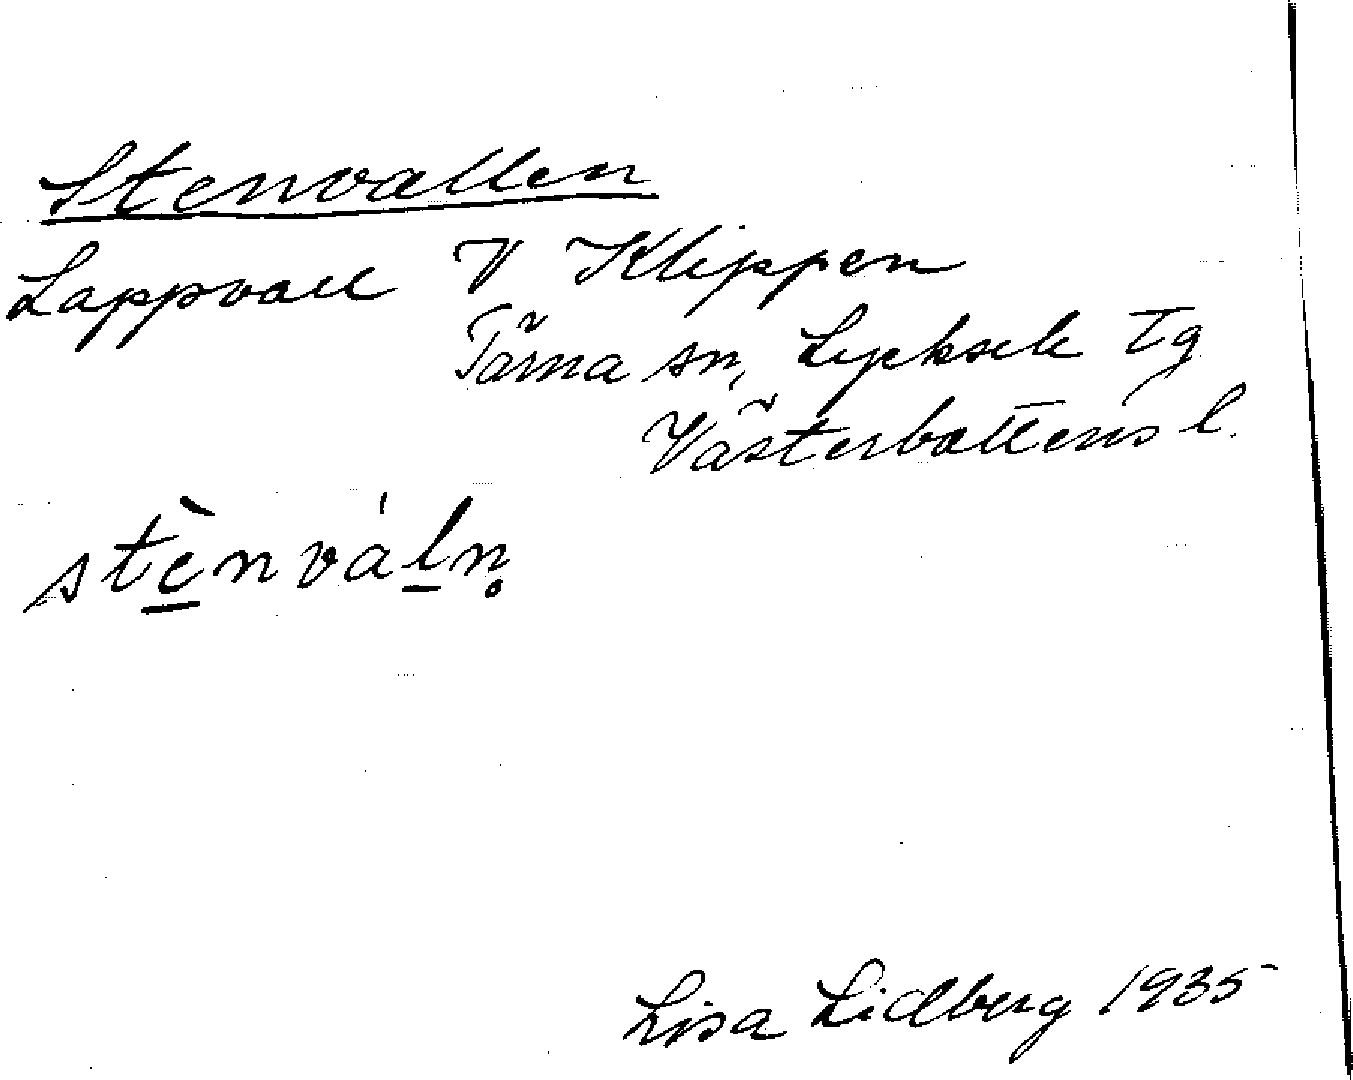 Stenvallen
Lappvall V Klippen
Tärna sn, Lycksele tg
Västerbottens l.
stè̠nvál̠n̥
Lisa Lidberg 1935